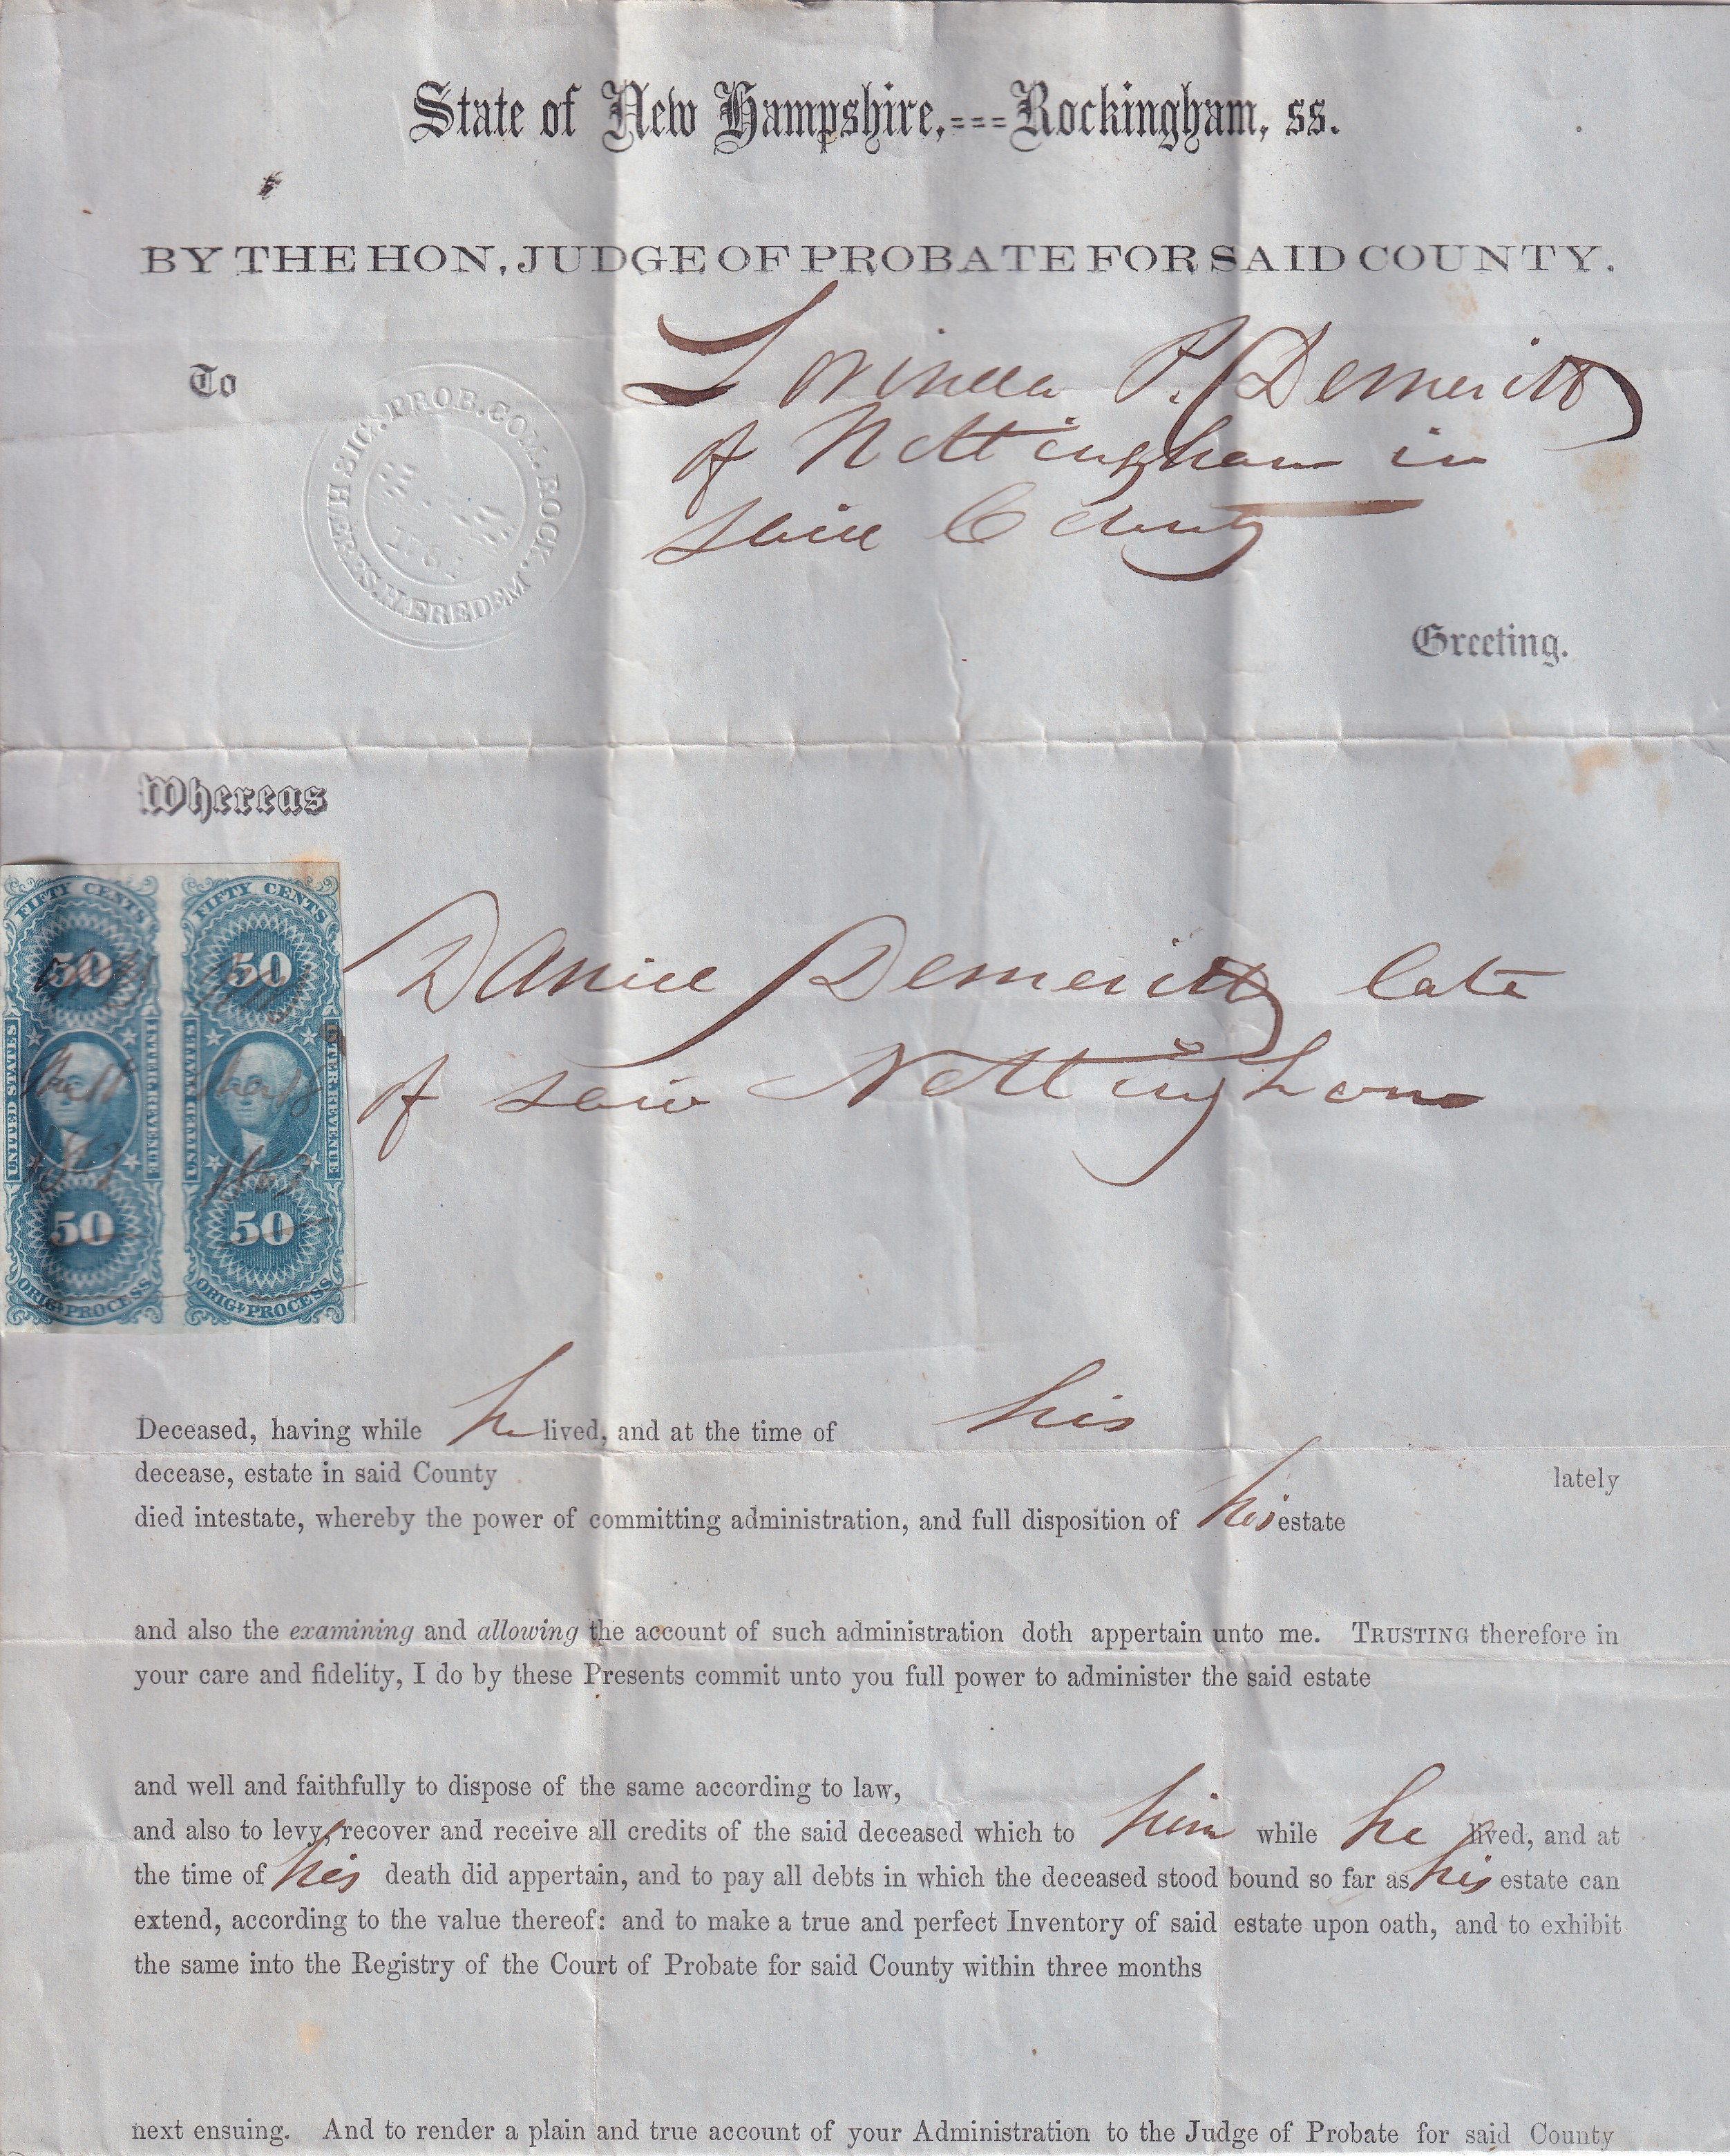 State of New Hampshire,===Rockingham, ss.
BY THE HON. JUDGE OF PROBATE FOR SAID COUNTY.
To
P. Demeritt
of Nottingham in
said County
SIC. PROB. COM. ROCK. HÆREDEM.
Greeting.
Whereas
FIFTY CENTS FIFTY CENTS
50 50
UNITED STATES INTER. REVENUE UNITED STATES INTER. REVENUE
1863
50 50
ORIGL. PROCESS ORIGL. PROCESS
Daniel Demeritt late
of said Nottingham
Deceased, having while he lived, and at the time of his
decease, estate in said County lately
died intestate, whereby the power of committing administration, and full disposition of his estate
and also the examining and allowing the account of such administration doth appertain unto me. TRUSTING therefore in
your care and fidelity, I do by these Presents commit unto you full power to administer the said estate
and well and faithfully to dispose of the same according to law,
and also to levy, recover and receive all credits of the said deceased which to him while he lived, and at
the time of his death did appertain, and to pay all debts in which the deceased stood bound so far as his estate can
extend, according to the value thereof: and to make a true and perfect Inventory of said estate upon oath, and to exhibit
the same into the Registry of the Court of Probate for said County within three months
next ensuing. And to render a plain and true account of your Administration to the Judge of Probate for said County